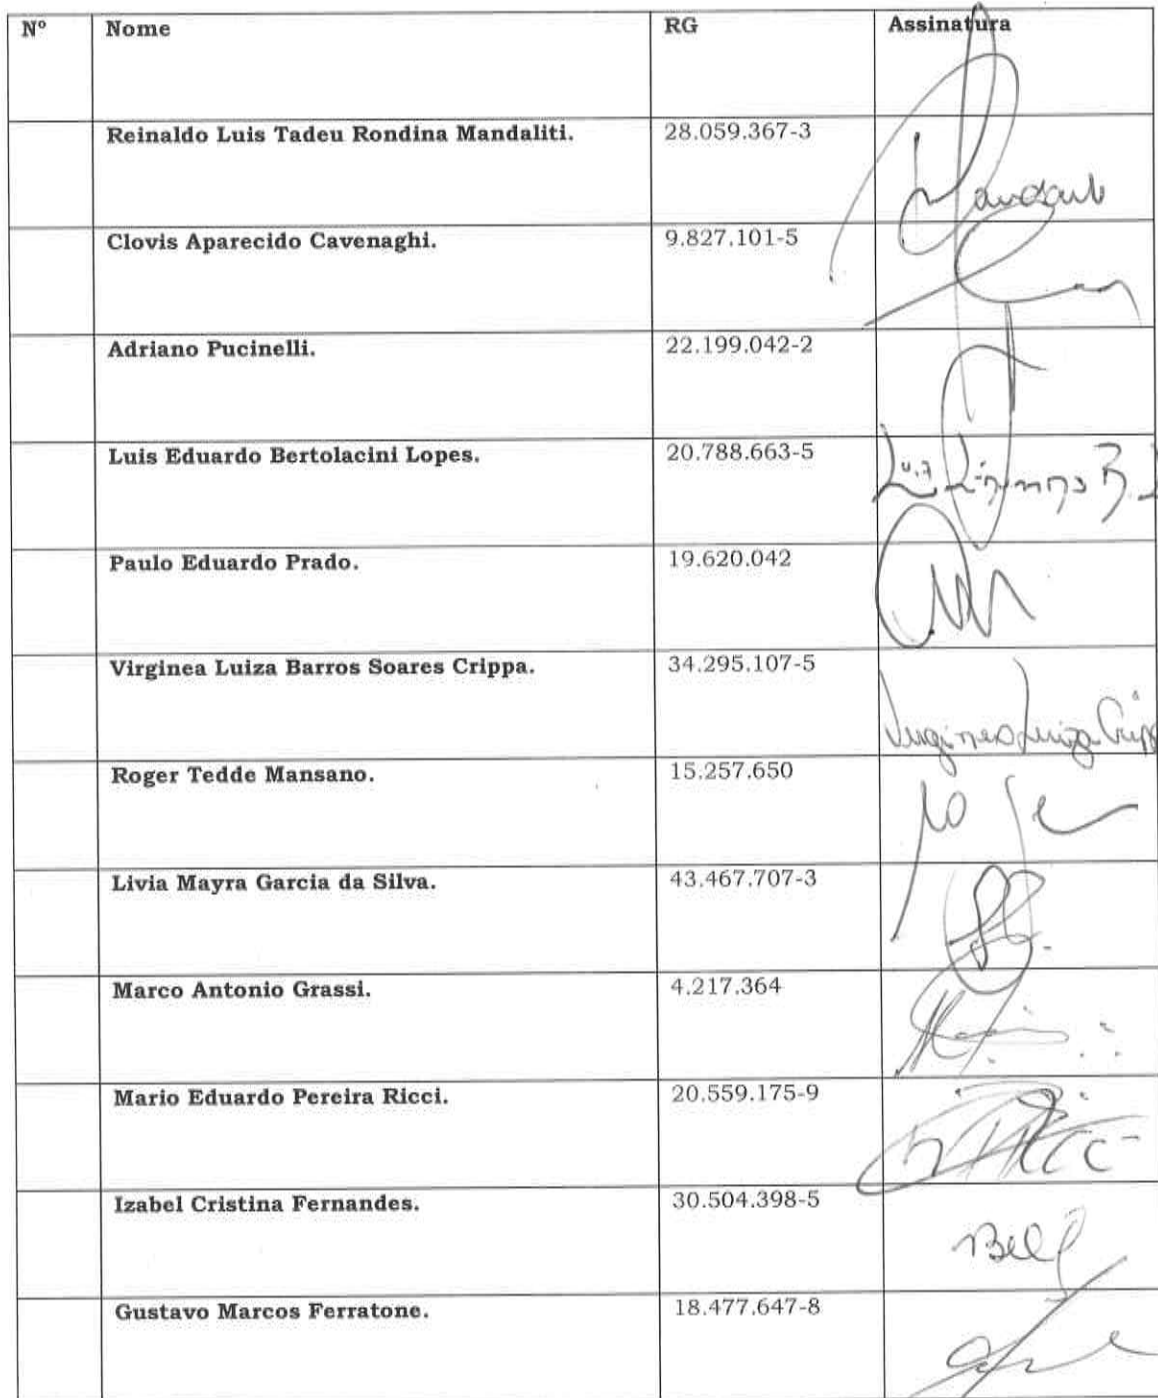 Nº Nome RG Assinatura
Reinaldo Luis Tadeu Rondina Mandaliti. 28.059.367-3
Clovis Aparecido Cavenaghi. 9.827.101-5
Adriano Pucinelli. 22.199.042-2
Luis Eduardo Bertolacini Lopes. 20.788.663-5
Paulo Eduardo Prado. 19.620.042
Virginea Luiza Barros Soares Crippa. 34.295.107-5 Virginea Luiza Cripp
Roger Tedde Mansano. 15.257.650
Livia Mayra Garcia da Silva. 43.467.707-3
Marco Antonio Grassi. 4.217.364
Mario Eduardo Pereira Ricci. 20.559.175-9
Izabel Cristina Fernandes. 30.504.398-5
Gustavo Marcos Ferratone. 18.477.647-8